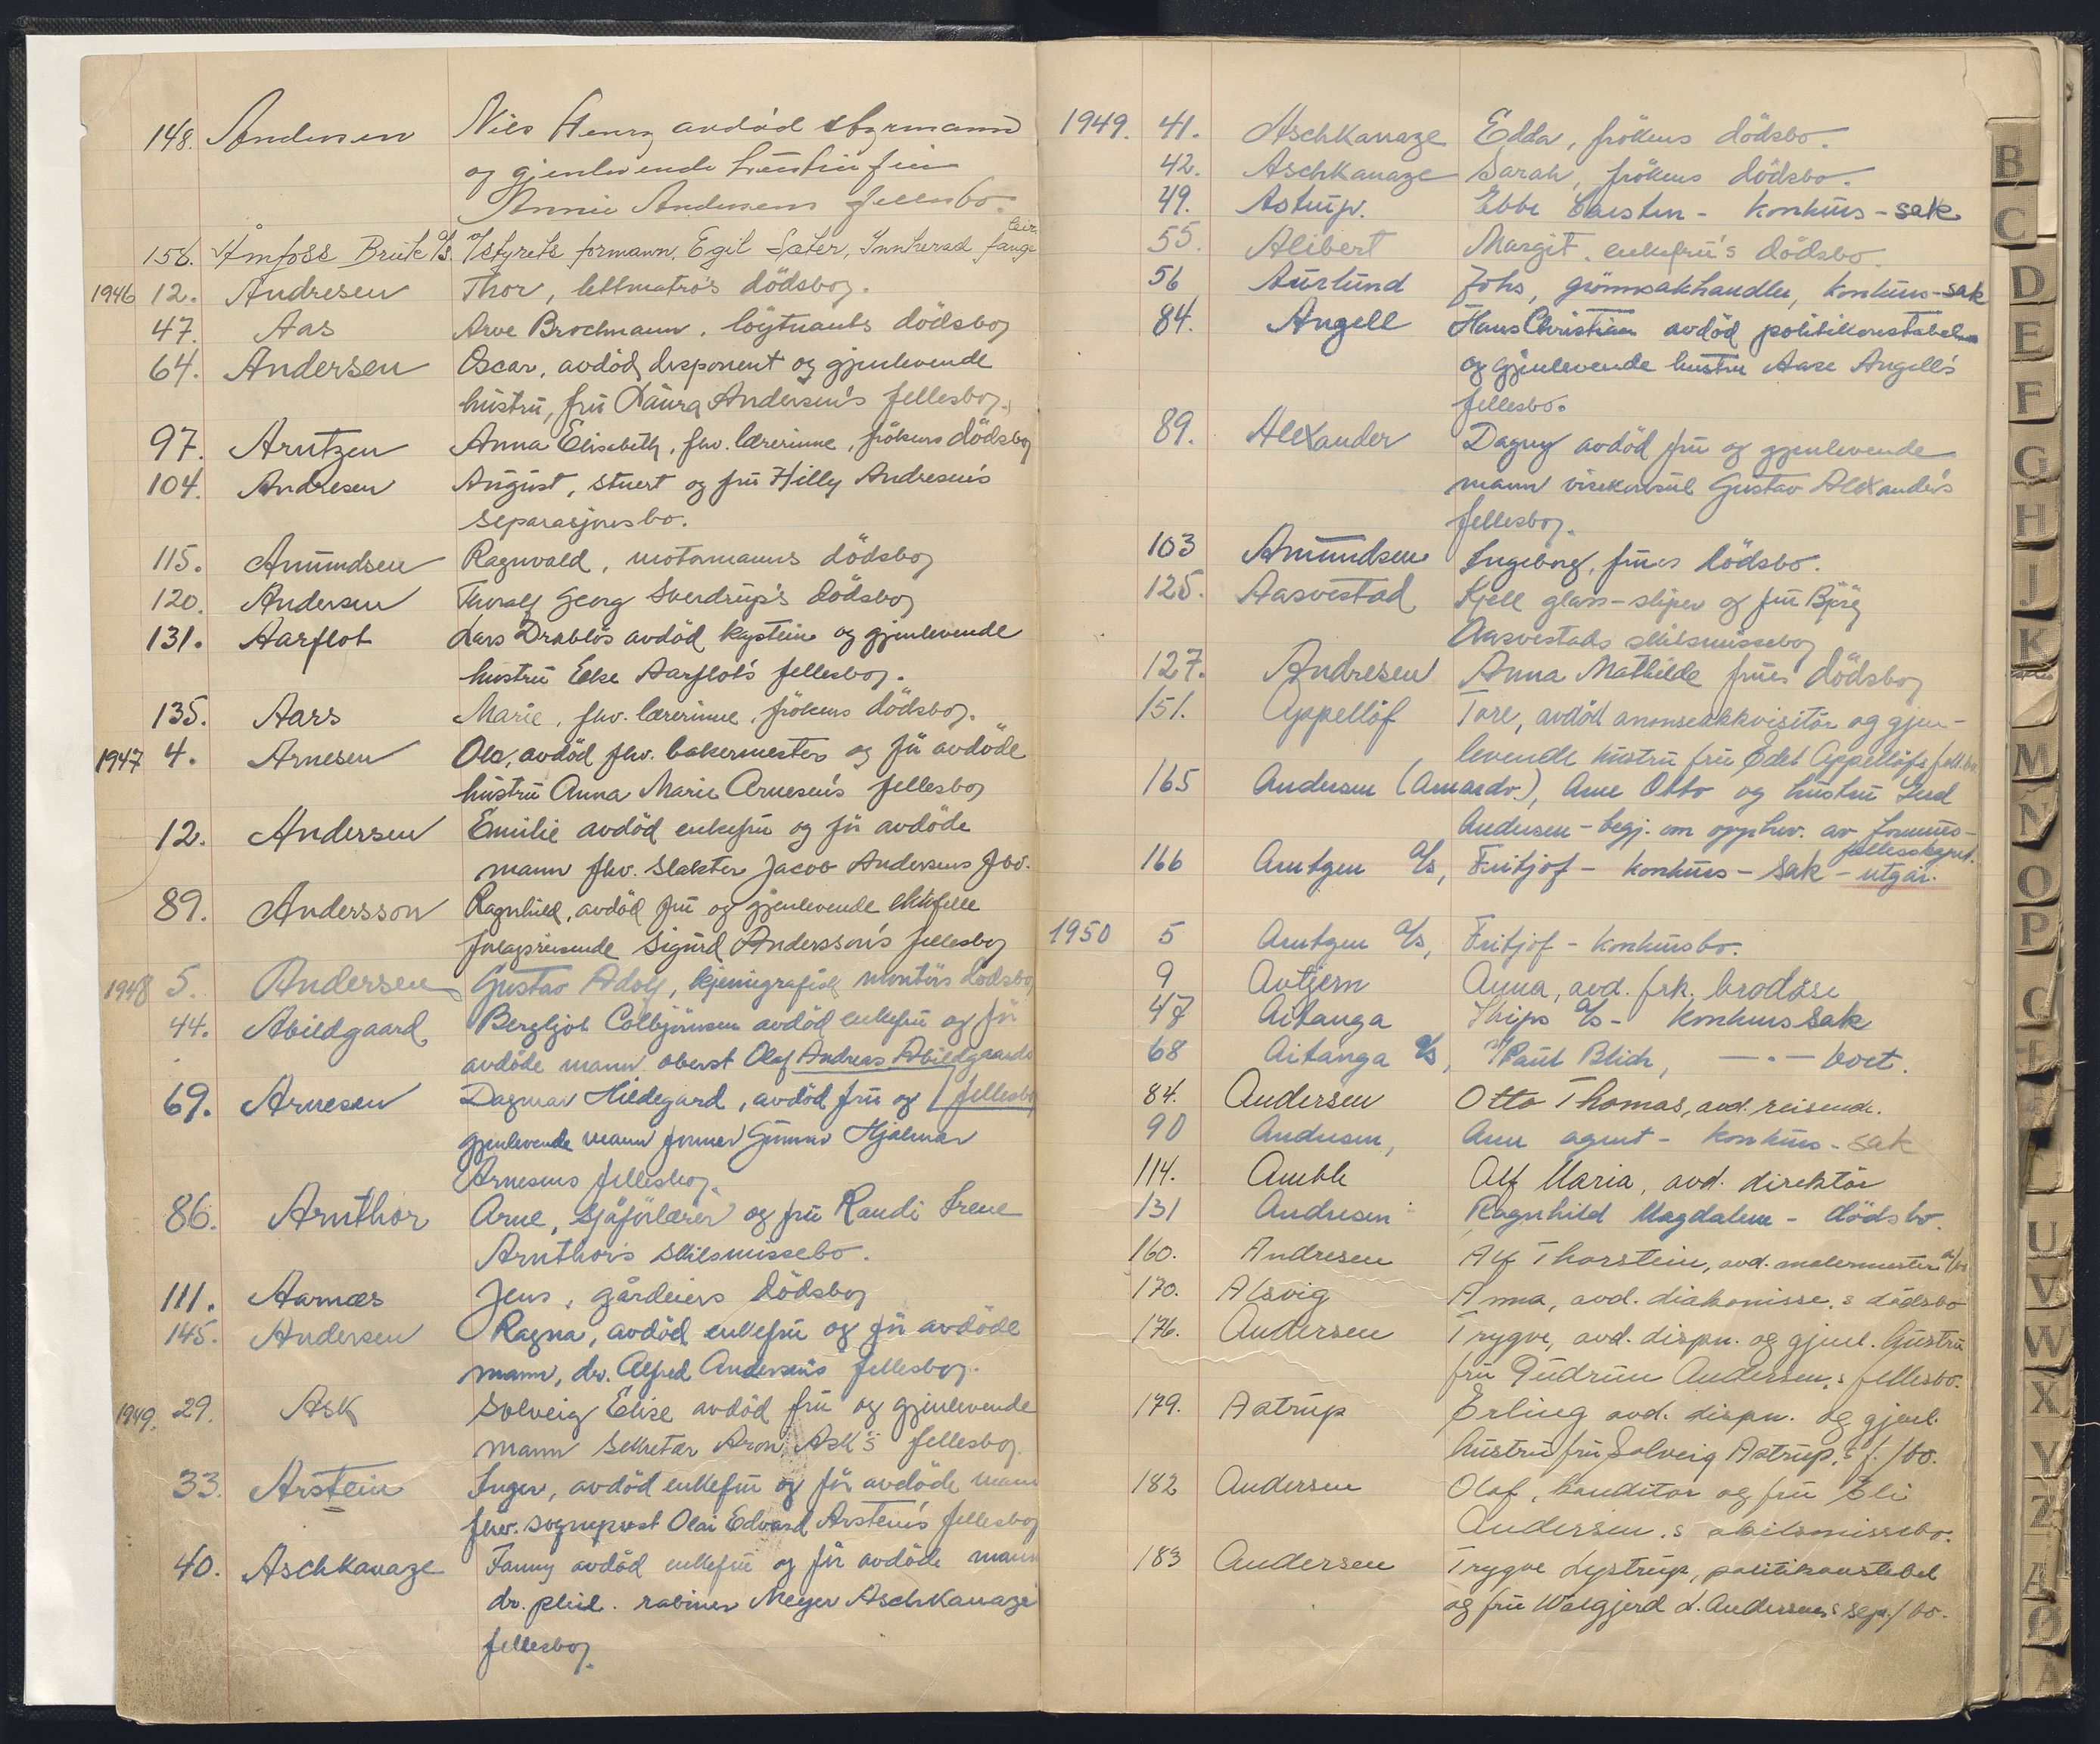 148. Andersen Niels Henry avdöd styrmann
og gjenlevende hustru fru
Annie Andersens fellesbo.
158. Åmfoss Bruk A/S. v/styrets formann, Egil Sæter, Innherad fange
leir.
1946 12. Andresen Thor, lettmatros dödsbo.
47. Aas Arve Brochmann, löytnants dödsbo
64. Andersen Oscar, avdöd disponent og gjenlevende
hustru, fru Laura Andersen's fellesbo.
97. Arntzen Anna Elisabeth, fhv. lærerinne, frökens dödsbo
104. Andresen August, stuert og fru Hilly Andresen's
separasjonsbo.
115. Amundsen Ragnvald, motormanns dödsbo
120. Andersen Thoralf Georg Sverdrup's dödsbo
131. Aarflot Lars Drabløs avdöd kaptein og gjenlevende
hustru Else Aarflot's fellesbo.
135. Aars Marie, fhv. lærerinne, frökens dödsbo.
1947 4. Arnesen Ole, avdöd fhv. bakermester og för avdöde
hustru Anna Marie Arnesen's fellesbo
12. Andersen Emilie avdöd enkefru og för avdöde
mann fhv. slakter Jacob Andersens f.bo.
89. Andersson Ragnhild, avdöd fru og gjenlevende ektefelle
forlagsreisende Sigurd Andersson's fellesbo
1948 5. Andersen Gustav Adolf, kjemigrafisk montörs dödsbo
44. Abildgaard Bergljot Colbjörnsen avdöd enkefru og för
avdöde mann oberst Olaf Andreas Abildgaards
fellesbo
69. Arnesen Dagmar Hildegard, avdöd fru og
gjenlevende mann former Gunnar Hjalmar
Arnesens fellesbo.
86. Arnthor Arne, sjåförlærer og fru Randi Irene
Arnthor's skilsmissebo.
111. Aarnæs Jens, gårdeiers dödsbo
145. Andersen Ragna, avdöd enkefru og för avdöde
mann, dr. Alfred Andersen's fellesbo.
1949. 29. Ask Solveig Elise avdöd fru og gjenlevende
mann sekretær Aron Ask's fellesbo.
33. Arstein Inger, avdöd enkefru og för avdöde mann
fhv. sogneprest Olai Edvard Arstein's fellesbo
40. Aschkanaze Fanny avdöd enkefru og för avdöde mann
dr. phil. rabiner Meyer Aschkanaze
fellesbo.
1949. 41. Aschkanaze Edda, frökens dödsbo.
42. Aschkanaze Sarah, frökens dödsbo.
49. Astrup. Ebbe Carsten - konkurs - sak
55. Alibert Margit, enkefru's dödsbo.
56 Aurlund Johs, grönnsakhandler, konkurs-sak
84. Angell Hans Christian avdöd politikonstabel
og gjenlevende hustru Aase Angell's
fellesbo.
89. Alexander Dagny avdöd fru og gjenlevende
mann visekonsul Gustav Alexander's
fellesbo.
103 Amundsen Ingeborg, frues dödsbo.
125. Aasvestad Kjell glass-sliper og fru Björg
Aasvestads skilsmissebo
127. Andresen Anna Mathilde frues dödsbo
151. Appellöf Tore, avdöd annonseakkvisitör og gjen-
levende hustru fru Edel Appellöfs fell.bo
165 Andersen (Amardv.), Arne Otto og hustru Gerd
Andersen - begj. om opphev. av formues-
fellesskapet.
166 Arntzen A/S, Fritjof - konkurs - sak - utgår.
1950 5 Arntzen A/S, Fritjof - konkursbo.
9 Avtjern Anna, avd. frk. brodöse
47 Aitanga Skips A/S - konkurs sak
68 Aitanga A/S, v/Paul Blich, — " — bort.
84. Andersen Otto Thomas, avd. reisende.
90 Andresen, Arne agent - konkurs - sak
114. Amble Alf Maria, avd. direktör
131 Andresen Ragnhild Magdalene - dödsbo.
160. Andresen Alf Thorstein, avd. malermester d/bo
170. Alsvig Anna, avd. diakonisse, s dödsbo
176. Andersen Trygve, avd. dispn. og gjenl. hustru
fru Gudrun Andersen, s fellesbo.
179. Astrup Erling avd. dispn. og gjenl.
hustru fru Solveig Astrup, s f./bo.
182 Andersen Olaf, konditor og fru Eli
Andersen, s skilsmissebo.
183 Andersen Trygve Lystrup, politikonstabel
og fru Walgjerd L. Andersens sep./bo.
B
C
D
E
F
G
H
J
K
M
N
O
P
U
V
W
X
Y
Z
Ø